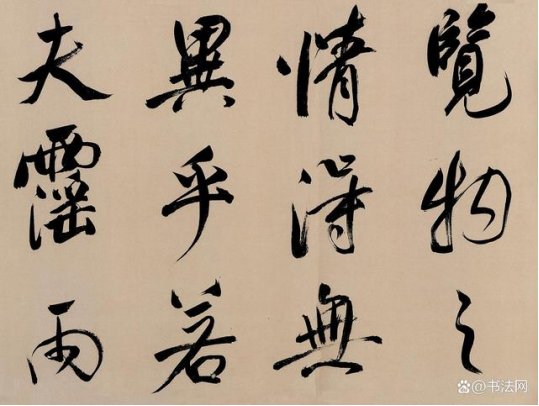 覽物之
情得無
異乎若
夫霪雨
@书法网